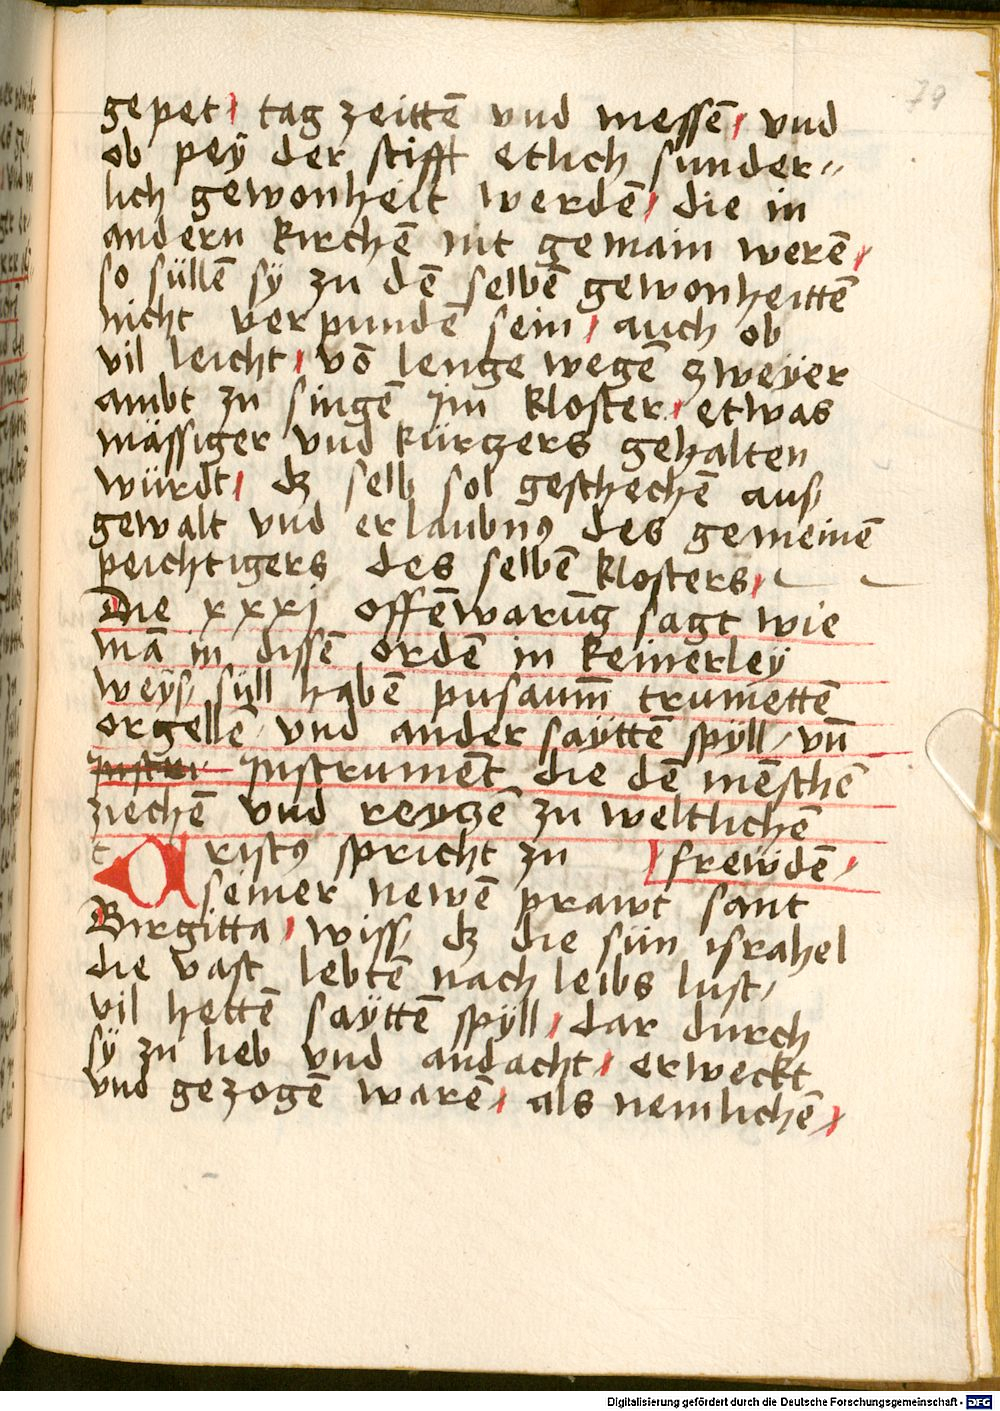 79
gepet / tag zeittē vnd messē / vnd
ob peÿ der stifft etlich sunder-
lich gewonheit werdē / die in
andern kirchē nit gemain werē /
so süllē sÿ zu dē selbē gewonheittē
nicht verpundē sein / auch ob
vil leicht / vō lenge wegē zweÿer
ambt zu singē jm kloster / etwas
mässiger vnd kürczers gehalten
würdt / dz selb sol geschechē auß
gewalt vnd erlaubnꝰ des gemeinē
peichtigers des selbē klosters /
Die xxxj offēwarūg sagt wie
mā in dissē ordē in keinerleÿ
weÿß süll habē pusaum̄ trumettē
orgellē / vnd ander saÿttē spÿll / vn̄
Jnstrumēt die dē mēschē
ziechē vnd reyczē zu weltlichē
ristꝰ spricht zu frewdē /
seiner newē prawt sant
Birgitta / wiss / dz die sün israhel
die vast lebtē nach leibs lust /
vil hettē saÿttē spÿll / dar durch
sÿ zu lieb vnd andacht / erweckt
vnd gezogē warē / als nemlichē /
Digitalisierung gefördert durch die Deutsche Forschungsgemeinschaft - DFG